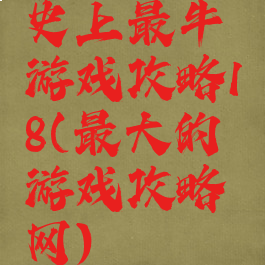 史上最牛
游戏攻略1
8(最大的
游戏攻略
网)